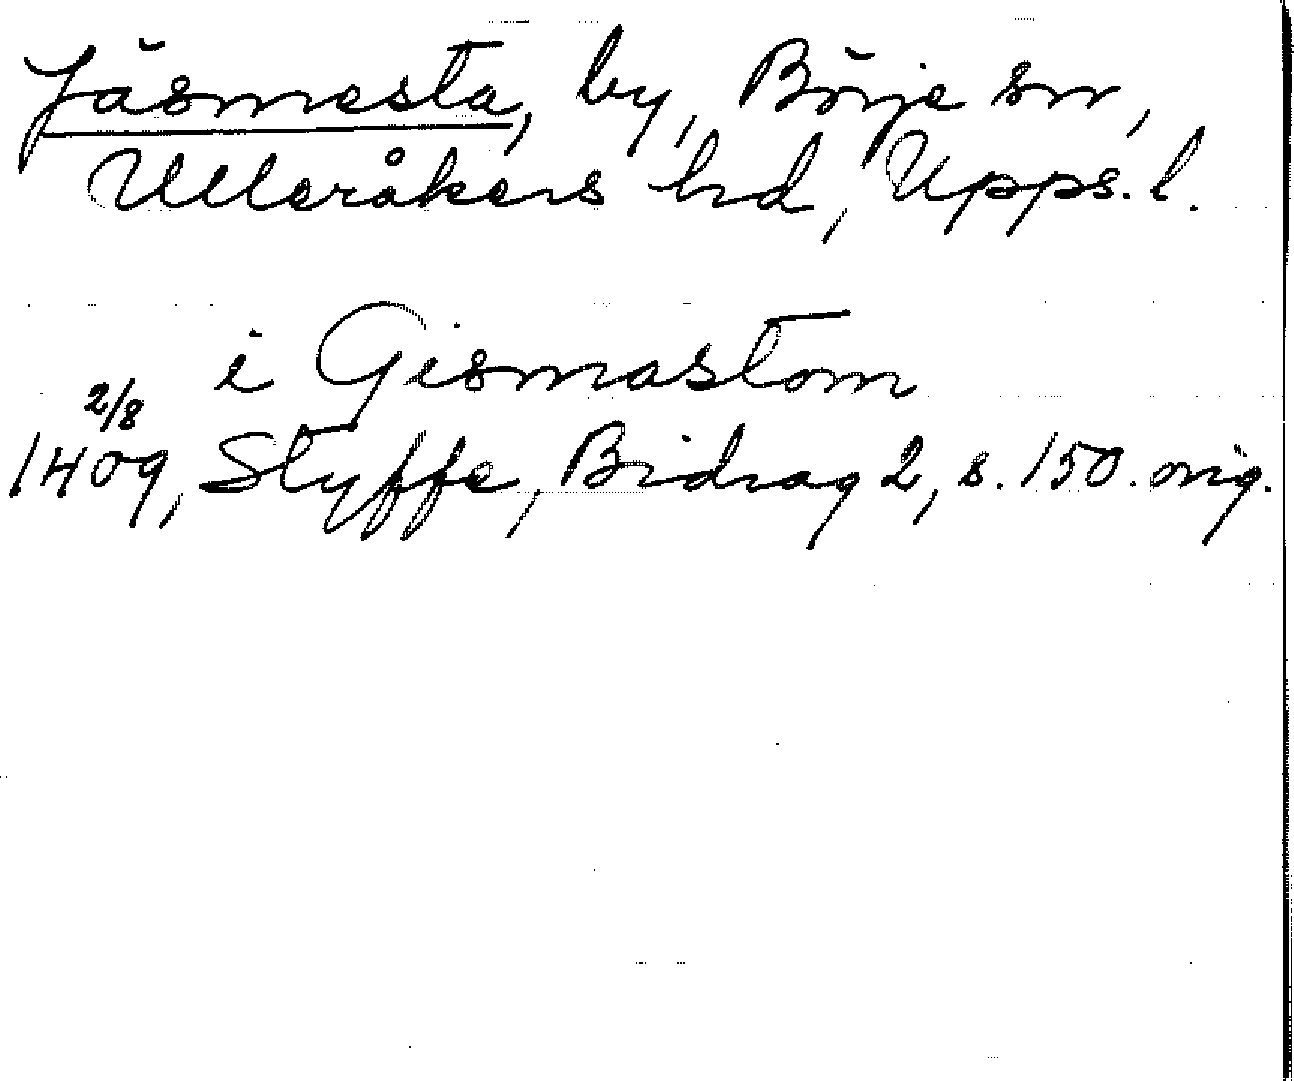 Jäsmesta, by, Börje sn,
Ulleråkers hd, Upps. l.
i Gismastom
2/8
1409, Styffe, Bidrag 2, s. 150. orig.